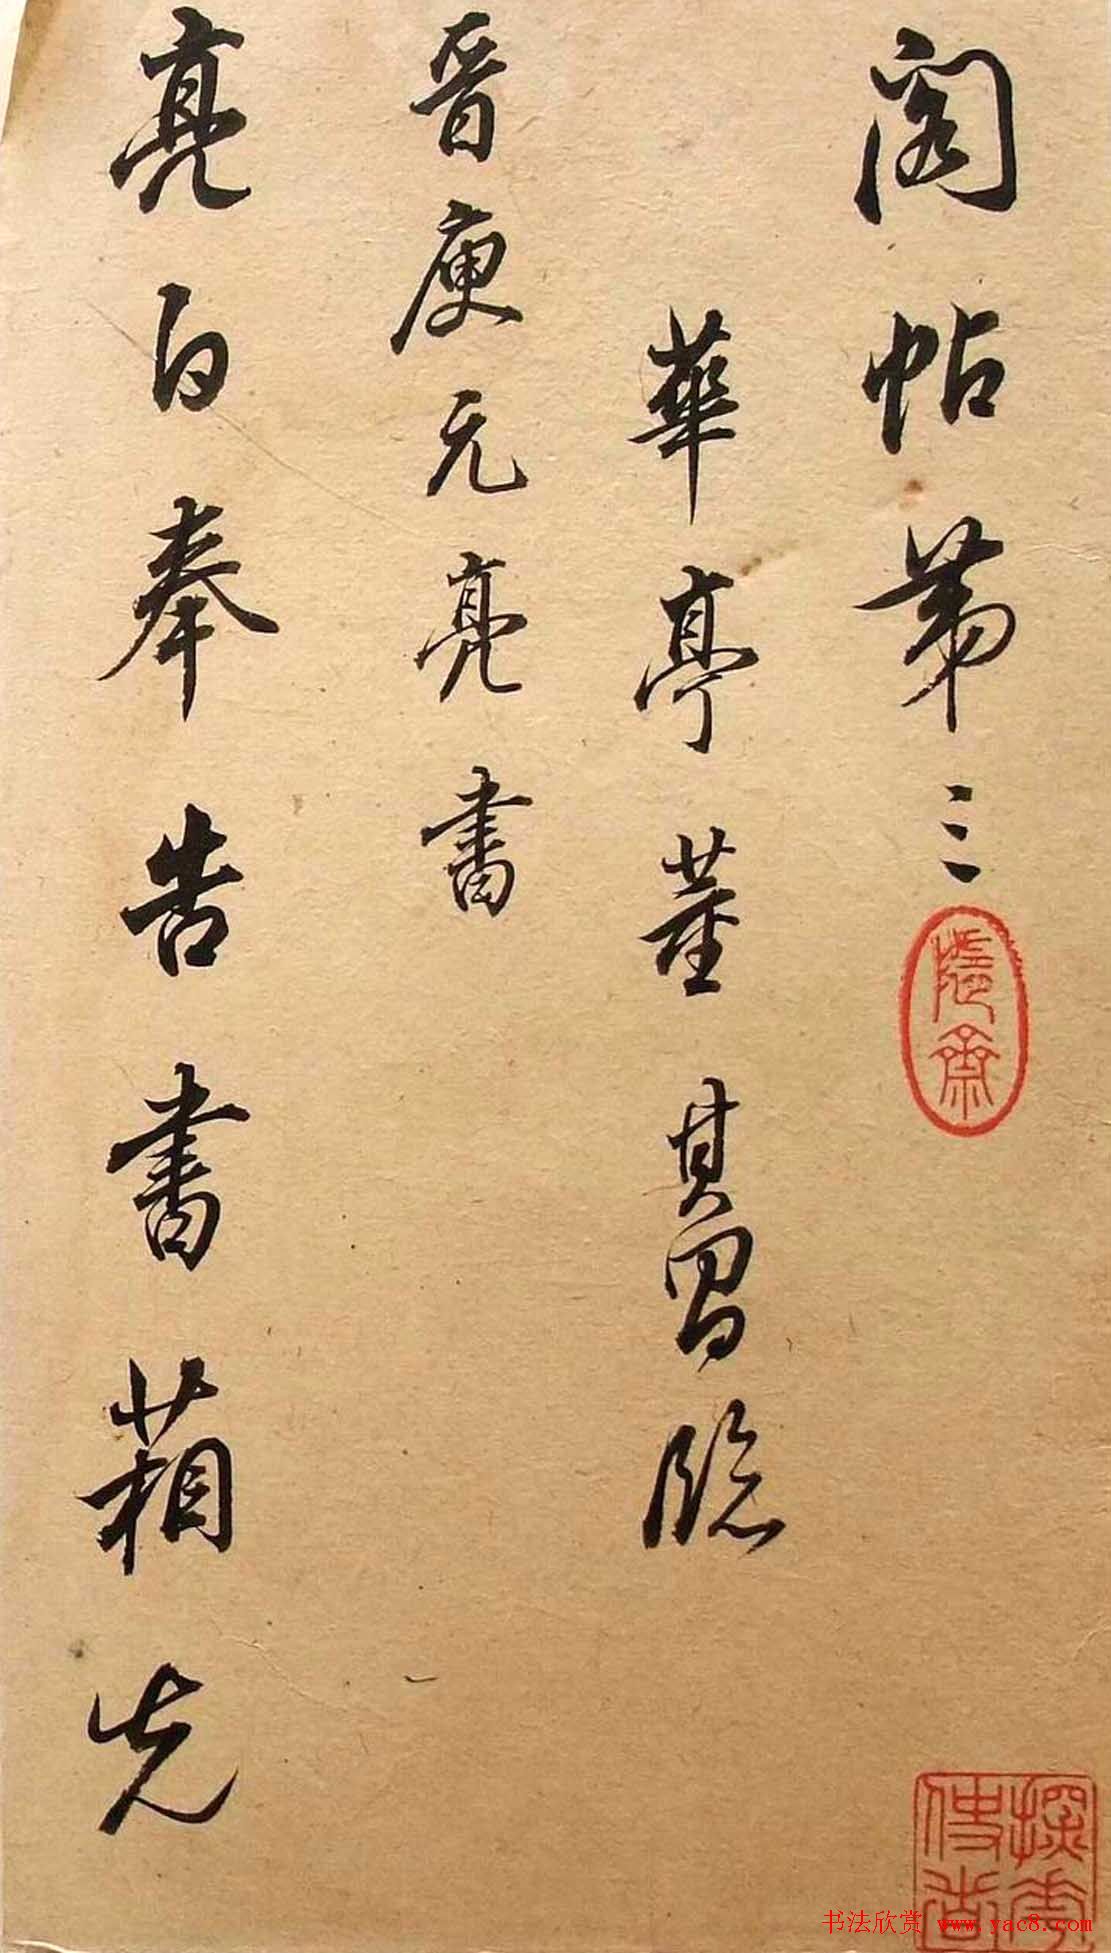 閣帖第三
華亭董其昌臨
晋庾元亮書
亮白奉告書箱先
隱齋
書法欣赏 www.yac8.com